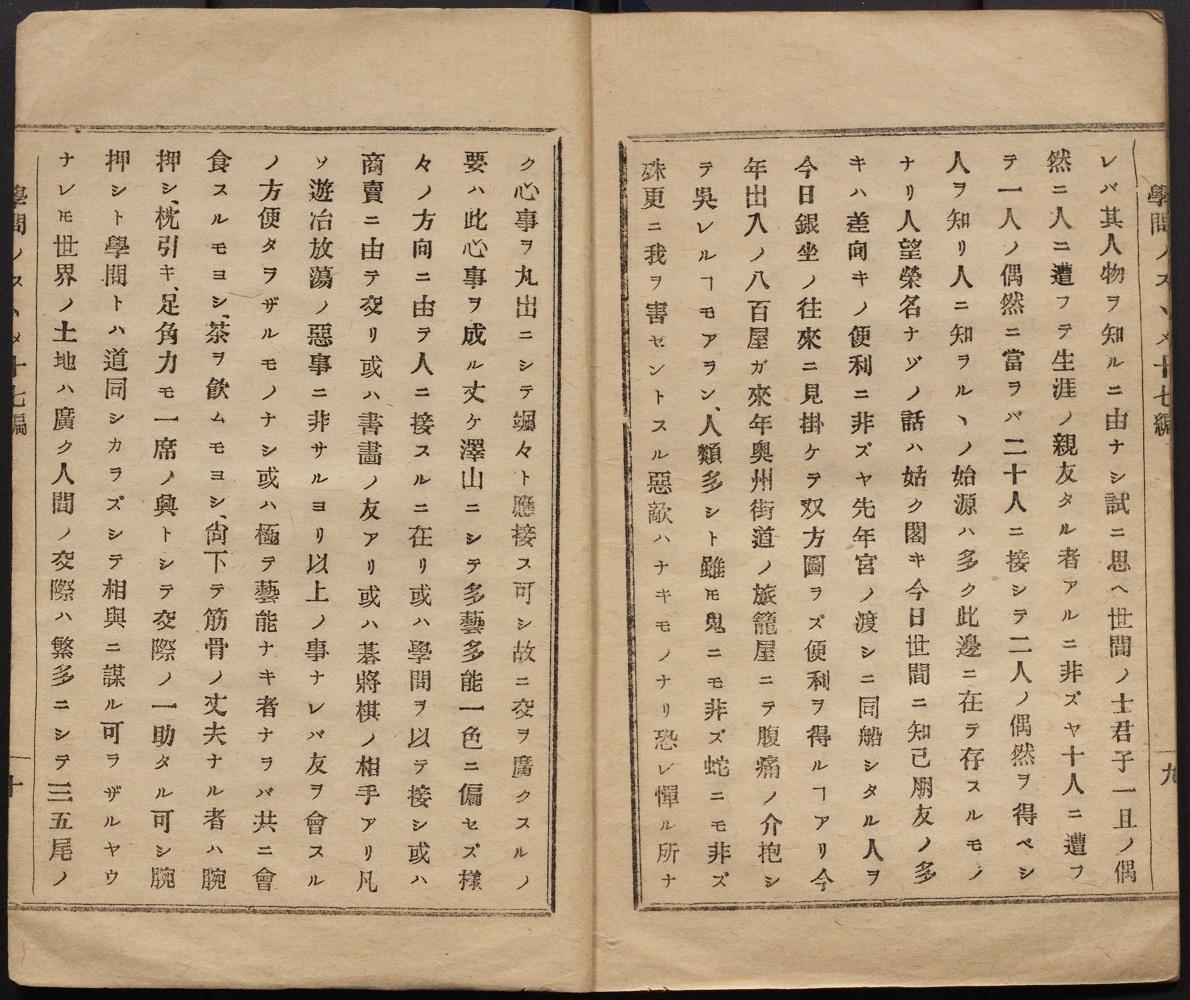 學問ノスヽメ十七編
九
レバ其人物ヲ知ルニ由ナシ試ニ思ヘ世間ノ士君子一旦ノ偶
然ニ人ニ遭フテ生涯ノ親友タル者アルニ非ズヤ十人ニ遭フ
テ一人ノ偶然ニ當ラバ二十人ニ接シテ二人ノ偶然ヲ得ベシ
人ヲ知リ人ニ知ラルヽノ始源ハ多ク此邊ニ在テ存スルモノ
ナリ人望榮名ナゾノ話ハ姑ク閣キ今日世間ニ知己朋友ノ多
キハ差向キノ便利ニ非ズヤ先年宮ノ渡シニ同船シタル人ヲ
今日銀坐ノ往來ニ見掛ケテ双方圖ラズ便利ヲ得ルヿアリ今
年出入ノ八百屋ガ來年奥州街道ノ旅籠屋ニテ腹痛ノ介抱シ
テ吳レルヿモアラン、人類多シト雖モ鬼ニモ非ズ蛇ニモ非ズ
殊更ニ我ヲ害セントスル惡敵ハナキモノナリ恐レ憚ル所ナ
ク心事ヲ丸出ニシテ颯々ト應接ス可シ故ニ交ヲ廣クスルノ
要ハ此心事ヲ成ル丈ケ澤山ニシテ多藝多能一色ニ偏セズ樣
々ノ方向ニ由テ人ニ接スルニ在リ或ハ學問ヲ以テ接シ或ハ
商賣ニ由テ交リ或ハ書畵ノ友アリ或ハ碁將棋ノ相手アリ凡
ソ遊冶放蕩ノ惡事ニ非サルヨリ以上ノ事ナレバ友ヲ會スル
ノ方便タラザルモノナシ或ハ極テ藝能ナキ者ナラバ共ニ會
食スルモヨシ、茶ヲ飮ムモヨシ、尙下テ筋骨ノ丈夫ナル者ハ腕
押シ、枕引キ、足角力モ一席ノ興トシテ交際ノ一助タル可シ腕
押シト學問トハ道同シカラズシテ相與ニ謀ル可ラザルヤウ
ナレモ世界ノ土地ハ廣ク人間ノ交際ハ繁多ニシテ三五尾ノ
學問ノスヽメ十七編
十